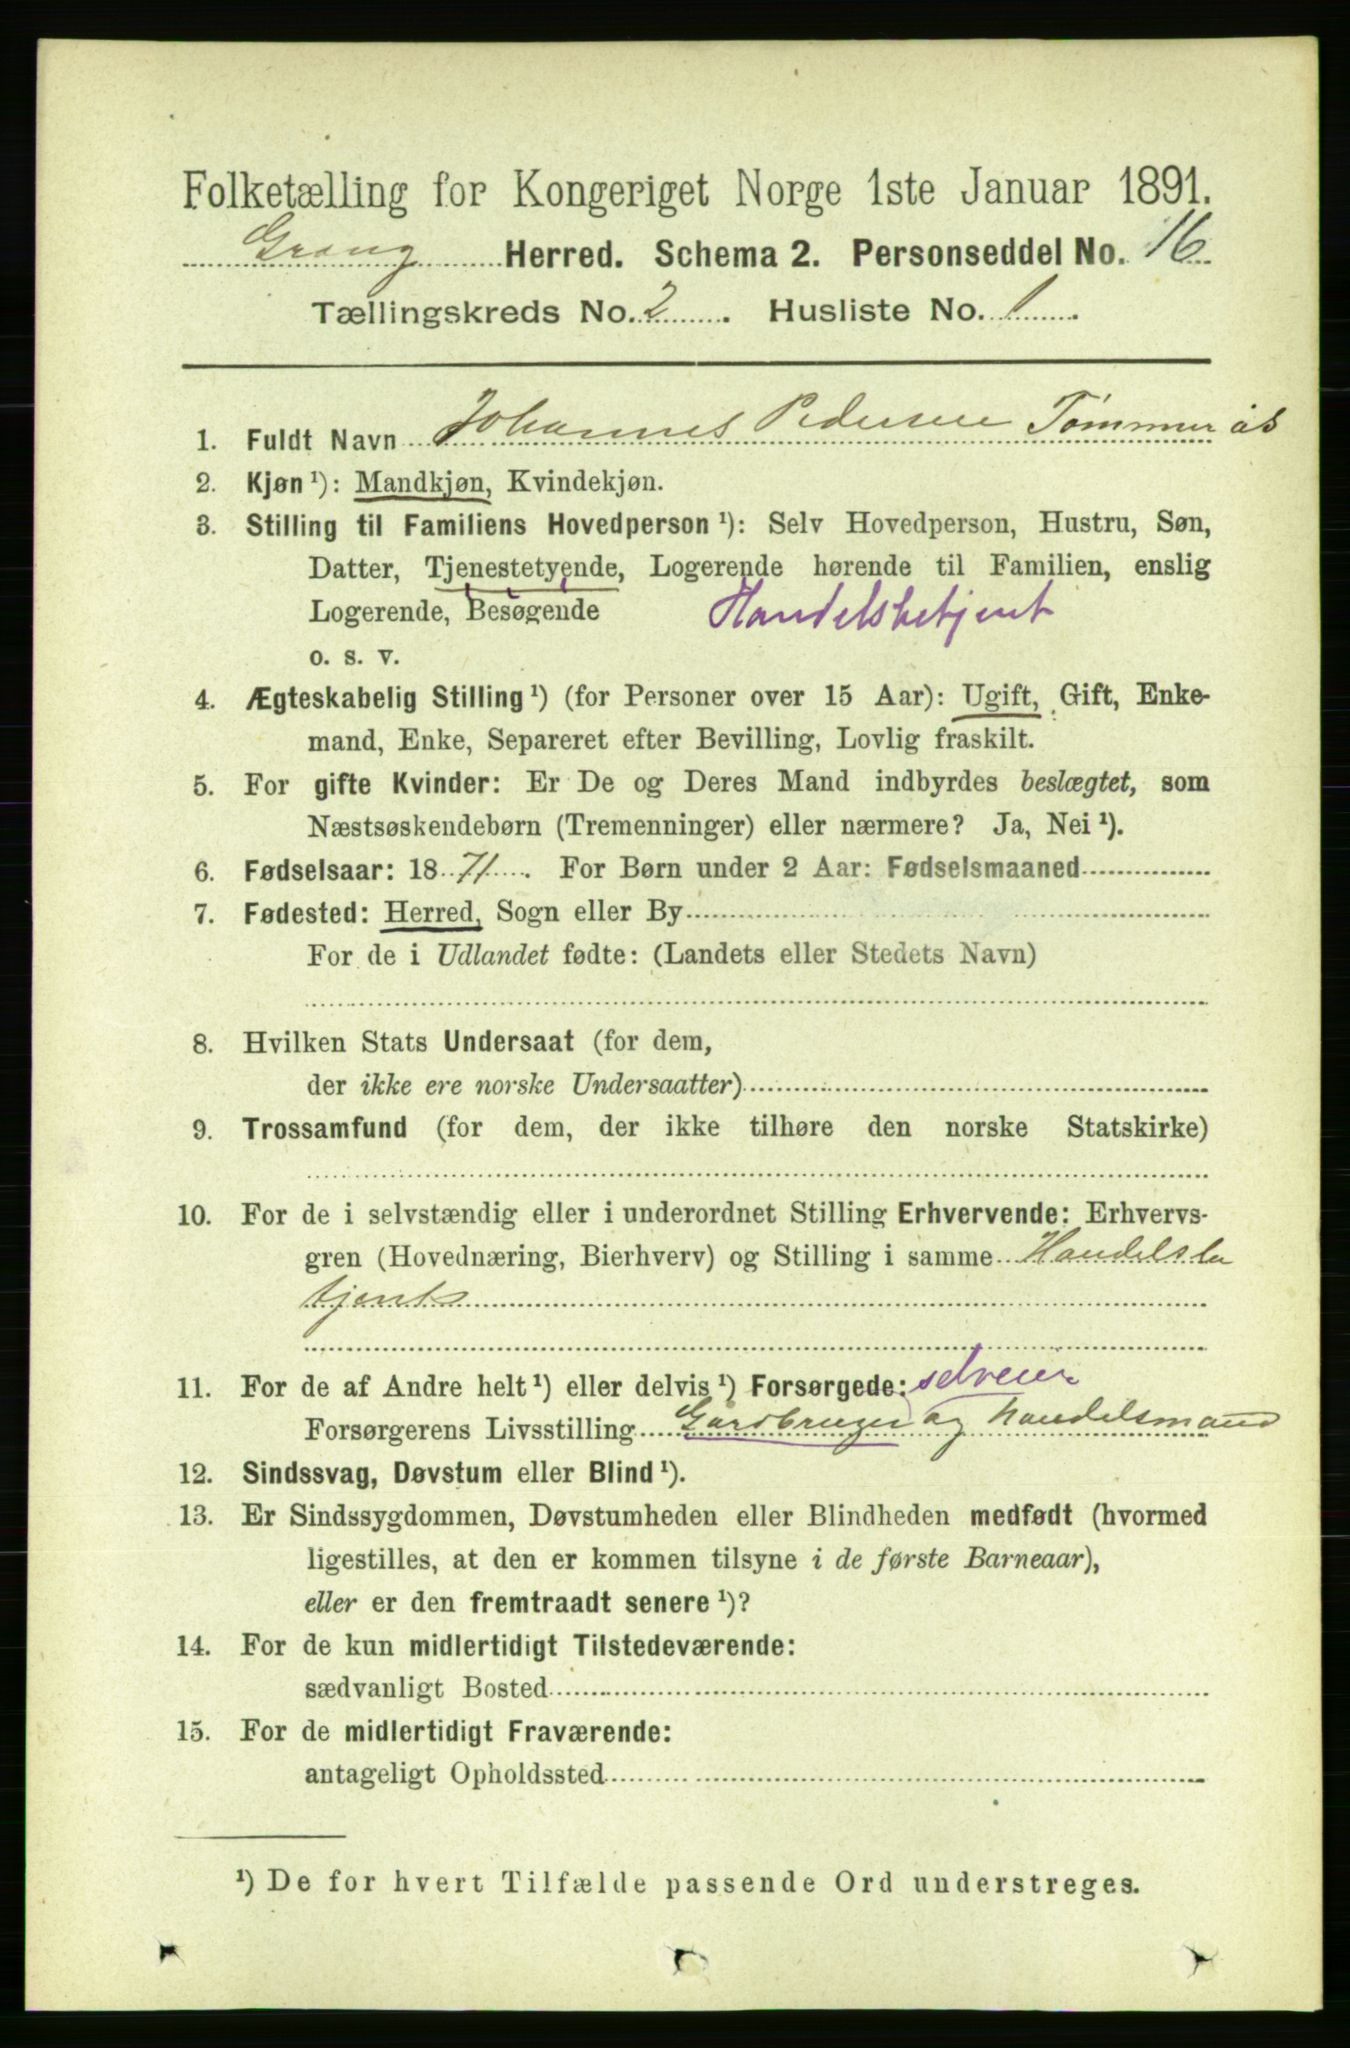 Folketælling for Kongeriget Norge 1ste Januar 1891.
Grong Herred. Schema 2. Personseddel No. 16
Tællingskreds No. 2. Husliste No. 1.
1. Fuldt Navn Johannes Pedersen Tømmerås
2. Kjøn ¹): Mandkjøn, Kvindekjøn.
3. Stilling til Familiens Hovedperson ¹): Selv Hovedperson, Hustru, Søn,
Datter, Tjenestetyende, Logerende hørende til Familien, enslig
Logerende, Besøgende Handelsbetjent
o. s. v.
4. Ægteskabelig Stilling ¹) (for Personer over 15 Aar): Ugift, Gift, Enke-
mand, Enke, Separeret efter Bevilling, Lovlig fraskilt.
5. For gifte Kvinder: Er De og Deres Mand indbyrdes beslægtet, som
Næstsøskendebørn (Tremenninger) eller nærmere? Ja, Nei ¹).
6. Fødselsaar: 18 71. For Børn under 2 Aar: Fødselsmaaned
7. Fødested: Herred, Sogn eller By
For de i Udlandet fødte: (Landets eller Stedets Navn)
8. Hvilken Stats Undersaat (for dem,
der ikke ere norske Undersaatter)
9. Trossamfund (for dem, der ikke tilhøre den norske Statskirke)
10. For de i selvstændig eller i underordnet Stilling Erhvervende: Erhvervs-
gren (Hovednæring, Bierhverv) og Stilling i samme Handelsbe
tjent
11. For de af Andre helt ¹) eller delvis ¹) Forsørgede: selveier
Forsørgerens Livsstilling Gårdbruger og handelsmand
12. Sindssvag, Døvstum eller Blind ¹).
13. Er Sindssygdommen, Døvstumheden eller Blindheden medfødt (hvormed
ligestilles, at den er kommen tilsyne i de første Barneaar),
eller er den fremtraadt senere ¹)?
14. For de kun midlertidigt Tilstedeværende:
sædvanligt Bosted
15. For de midlertidigt Fraværende:
antageligt Opholdssted
¹) De for hvert Tilfælde passende Ord understreges.